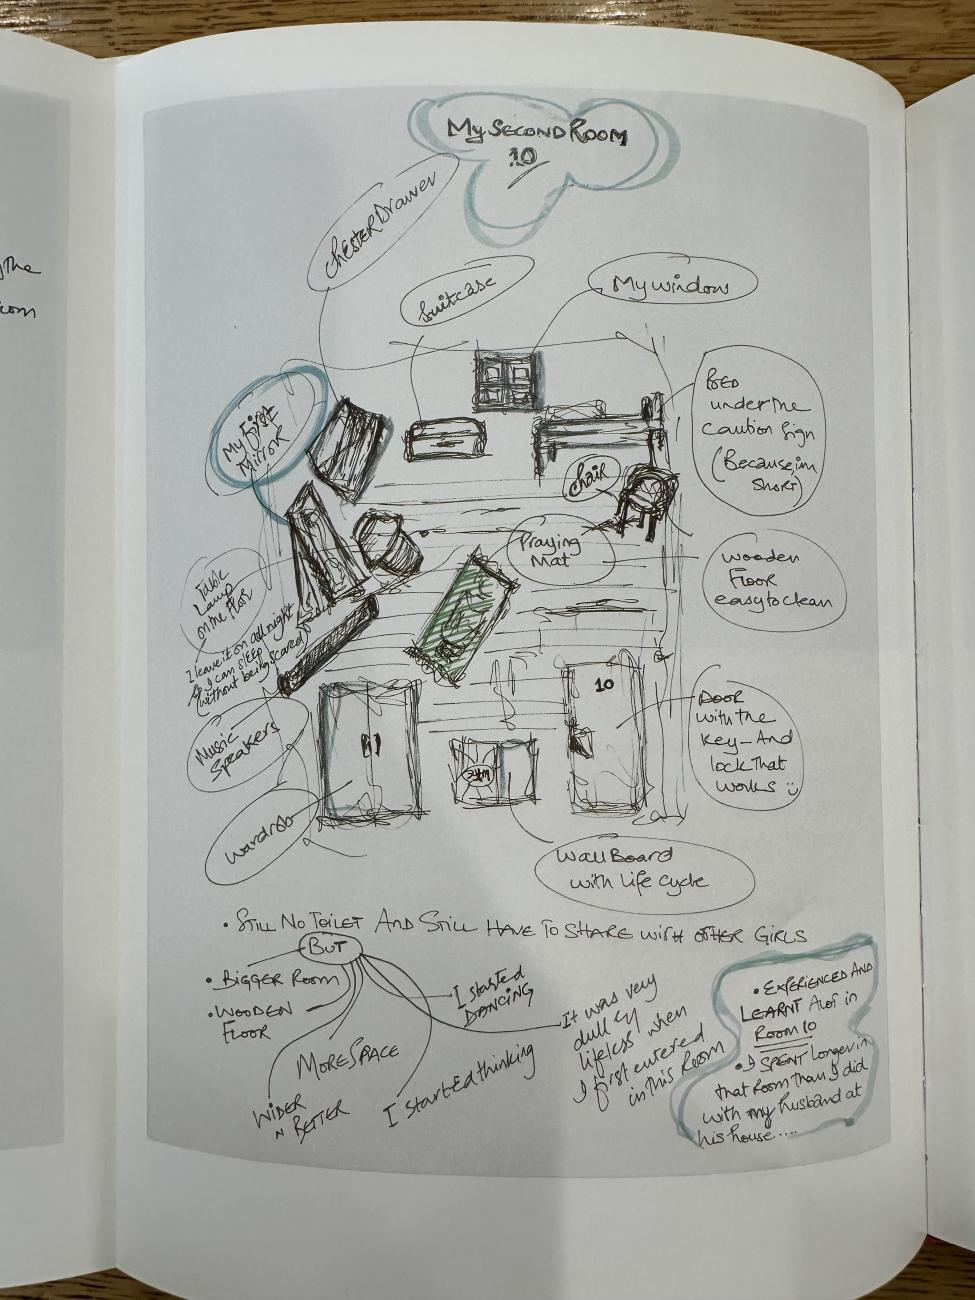 the
oom
My SECOND ROOM
10
CHESTER Drawer
Suitcase
My window
My First
Mirror
BED
under the
caution sign
(Because, im
short)
chair
Praying
Mat
wooden
Floor
easy to clean
Table
Lamp
on the floor
I leave it on all night
so I can sleep
(without being scared)
Music
Speakers
wardrob
10
DOOR
with the
key - And
lock that
works
Wall Board
with life cycle
• STILL NO TOILET AND STILL HAVE TO SHARE WITH OTHER GIRLS
BUT
• BIGGER ROOM
• WOODEN
FLOOR
MORE SPACE
WIDER
n BETTER
I started
DANCING
I started thinking
It was very
dull &
lifeless when
I first entered
in this Room
• EXPERIENCED AND
LEARNT Alot in
Room 10
• I SPENT longer in
that room than I did
with my husband at
his house....